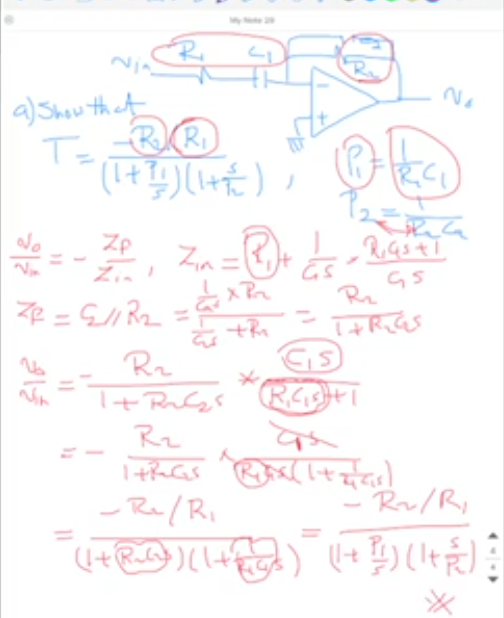 My Note 28
R₁ C₁
Vin
R₂
V₀
a) Show that
T = -R₂/R₁ / ((1+P₁/s)(1+s/P₂)) , P₁ = 1/(R₁C₁)
P₂ = 1/(R₂C₂)
V₀/Vin = - ZF/Zin , Zin = R₁ + 1/(C₁s) = (R₁C₁s+1)/(C₁s)
ZF = C₂//R₂ = (1/(C₂s) × R₂)/(1/(C₂s) + R₂) = R₂/(1+R₂C₂s)
V₀/Vin = - R₂/(1+R₂C₂s) * C₁s/(R₁C₁s+1)
= - R₂/(1+R₂C₂s) × C₁s/(R₁C₁s(1+1/(R₁C₁s)))
= -R₂/R₁ / ((1+R₂C₂s)(1+1/(R₁C₁s))) = -R₂/R₁ / ((1+P₁/s)(1+s/P₂))